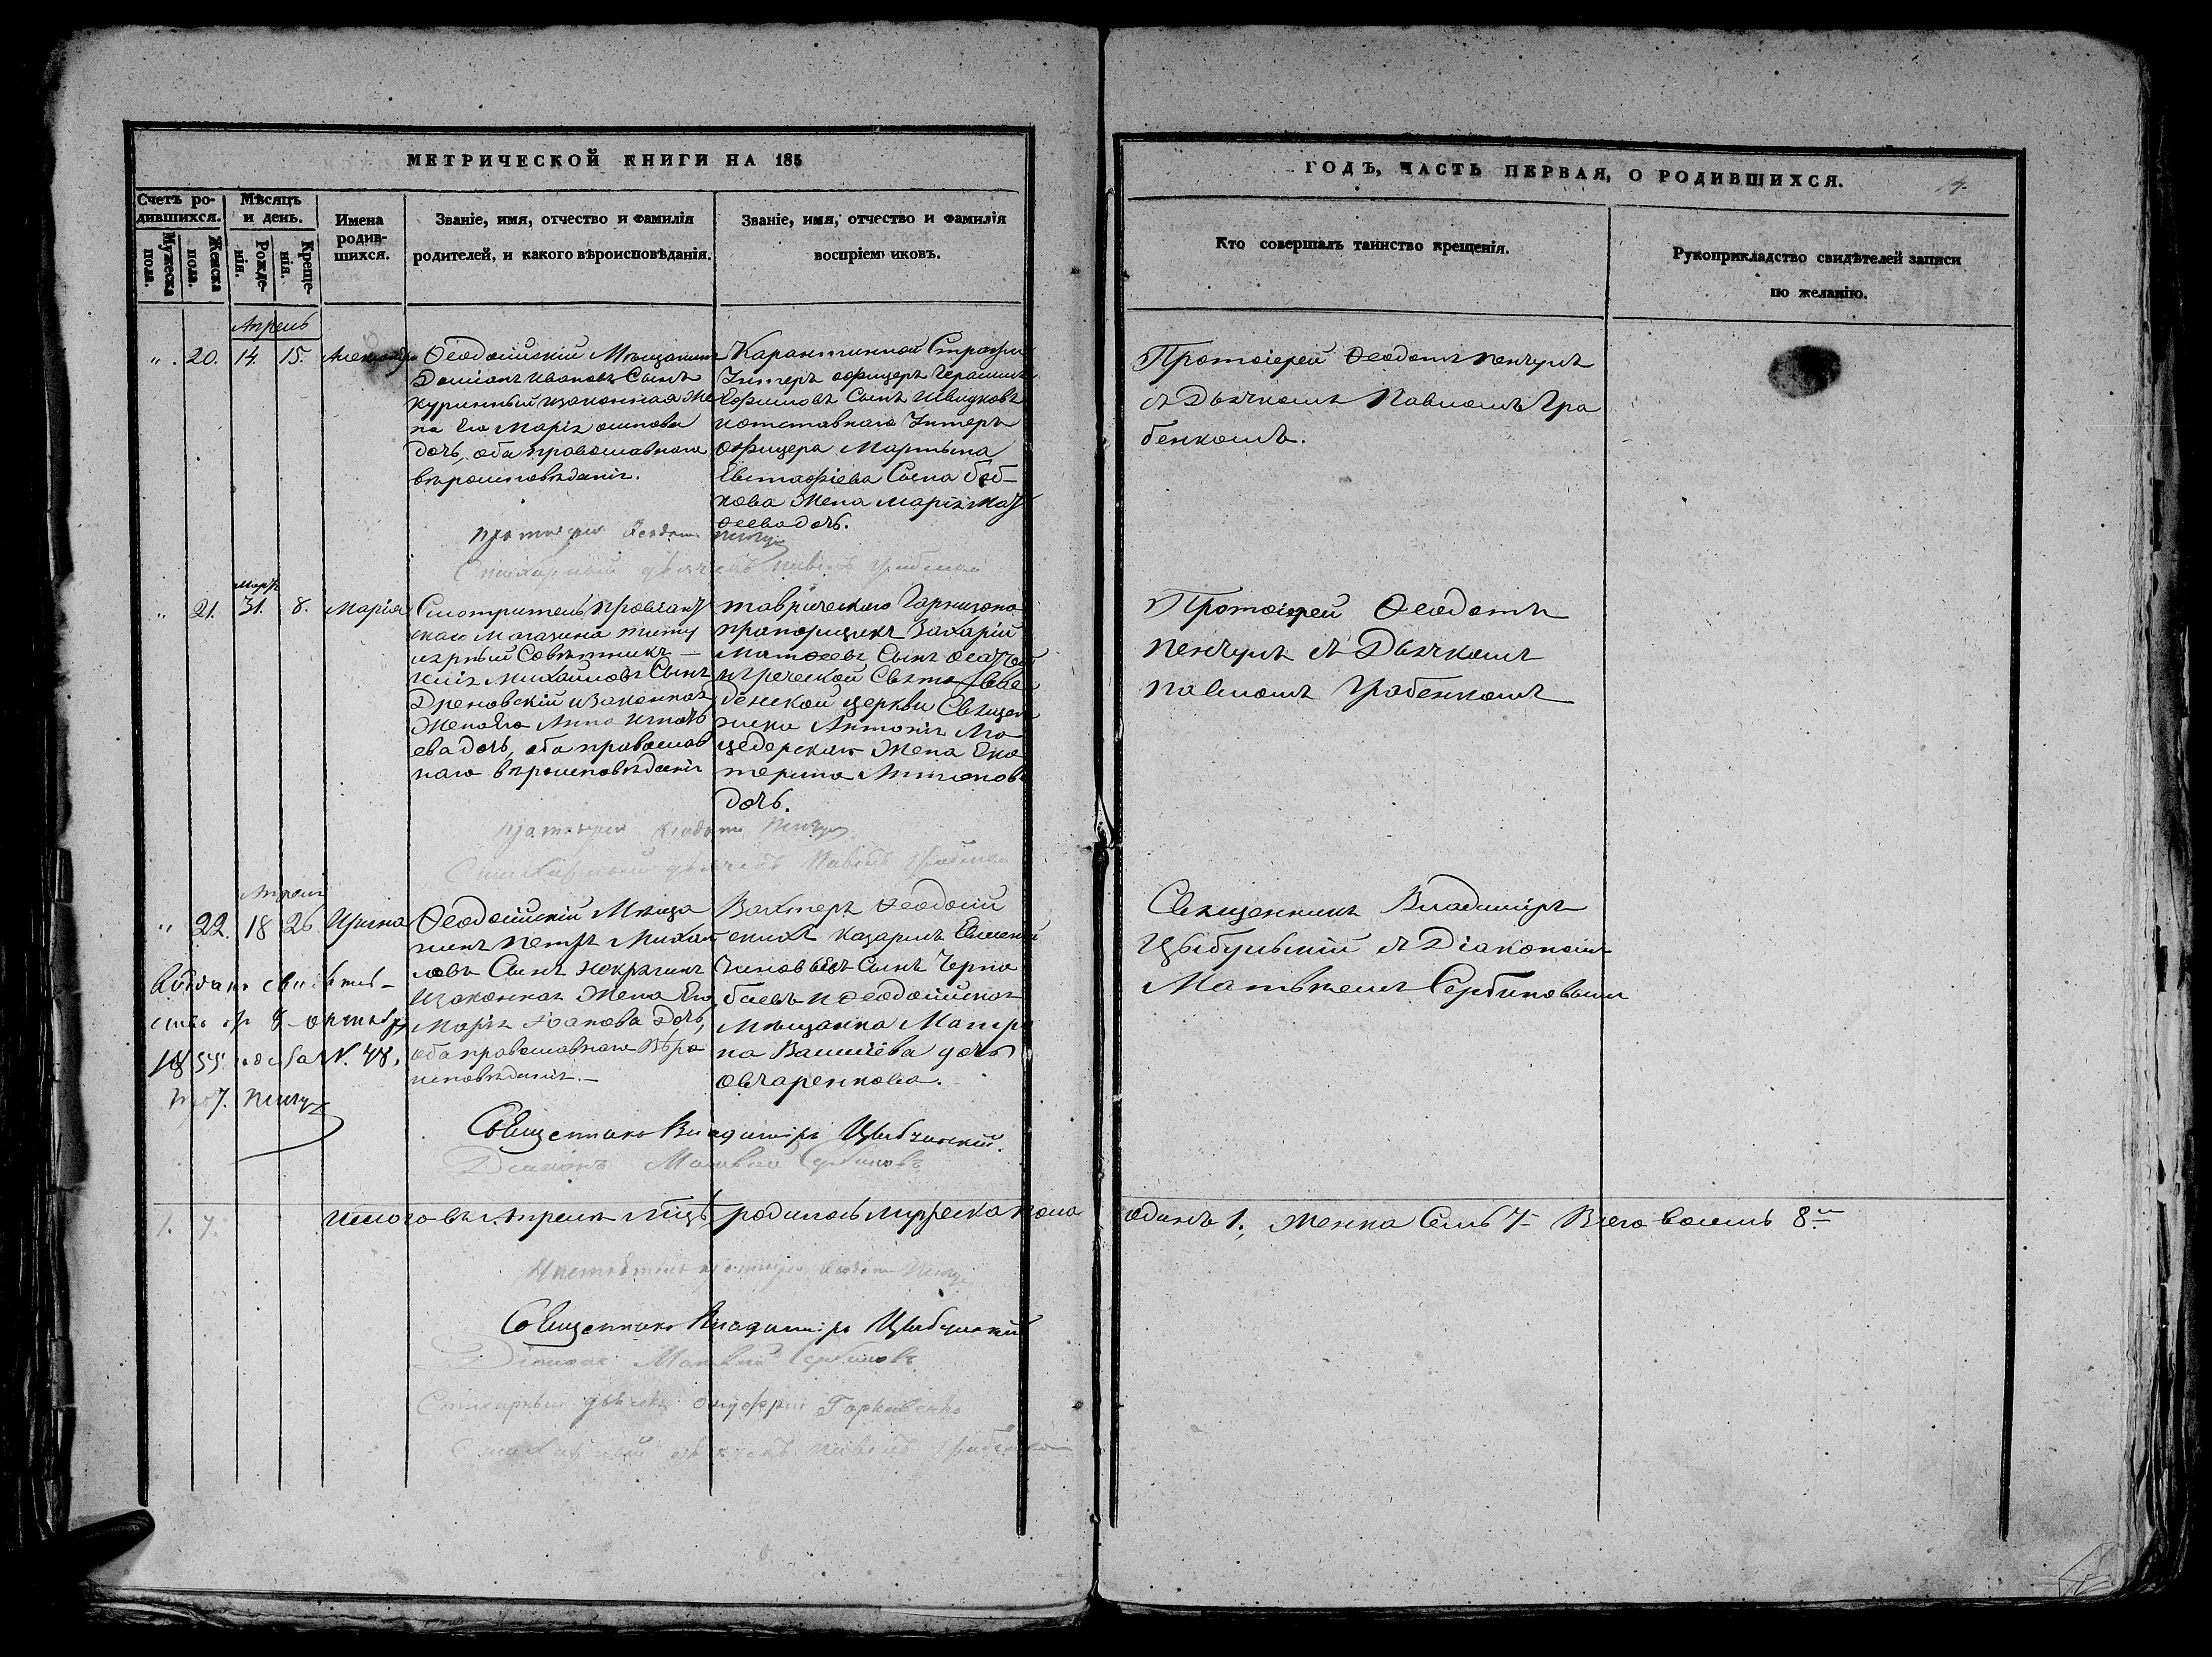 МЕТРИЧЕСКОЙ КНИГИ НА 185
ГОДЪ, ЧАСТЬ ПЕРВАЯ, О РОДИВШИХСЯ.
Счетъ ро-
дившихся.
Мужеска
пола.
Женска
пола.
Мѣсяцъ
и день.
Рожде-
нія.
Креще-
нія.
Имена
родив-
шихся.
Званіе, имя, отчество и фамилія
родителей, и какого вѣроисповѣданія.
Званіе, имя, отчество и фамилія
воспріемниковъ.
Кто совершалъ таинство крещенія.
Рукоприкладство свидѣтелей записи
по желанію.
Апрель
20. 14. 15. Александра
Ѳеодосійскій Мѣщанинъ
Даміанъ Ивановъ Сынъ
Куринный изаконная Же
на Его Марія
дочь, оба православнаго
вѣроисповѣданія.
Карантинной Стражи
Унтеръ офицеръ Герасимъ
Ефимовъ Сынъ Швидковъ
иотставнаго Унтеръ
Офицера Мартына
Евстафіева Сына Боб-
кова Жена Марія Маѳ
ѳеева дочь.
Протоіерей Ѳеодотъ Пенчулъ
съ Дьячкомъ Павломъ Гра
бенкомъ.
Протоіерей Ѳеодотъ Пенчулъ
Стихарный дьячекъ Павелъ Грабенко
Мартъ
21. 31. 8. Марія
Смотритель Провіант
скаго Магазина титу
лярный Совѣтникъ —
Михайловъ Сынъ
Дреновскій изаконная
Жена Его Анна Игнать
ева дочь, оба православ
наго вѣроисповѣданія
таврическаго Гарнизона
прапорщикъ Захарій
Матѳеевъ Сынъ
игреческой Свято Введ
денской церкви Священ
ника Антонія Мо
Жена Ека
терина Антонова
дочь.
Протоіерей Ѳеодотъ
Пенчулъ съ Дьячкомъ
Павломъ Грабенкомъ
Протоіерей Ѳеодотъ Пенчулъ
Стихарный дьячекъ Павелъ Грабенко
Апрель
22. 18 26 Ирина
Ѳеодосійскій Мѣща
нинъ Петръ Михай
ловъ Сынъ Некрасинъ
изаконная Жена Его
Марія Іоакова дочь,
оба православнаго Вѣро
исповѣданія. —
Вахтеръ Ѳеодосій
скихъ казармъ Евменій
Зиновьевъ Сынъ Черно
баевъ и Ѳеодосійская
Мѣщанка Матро
на Василіева дочь
Овчаренкова.
Священникъ Владиміръ
Цыбульскій съ Діакономъ
Матвѣемъ Сербиновымъ
Выдано свидѣтель-
ство октября
1855 года за N. 48.
Прот. Пенчулъ
Священникъ Владиміръ Цыбульскій.
Діаконъ Матвей Сербиновъ
1. 7.
Итого въ Апрелѣ Мцѣ родилось мужеска пола
одинъ 1, женска Семь 7 Всего восемь 8
Настоятель протоіерей Ѳеодотъ Пенчулъ
Священникъ Владиміръ Цыбульскій
Діаконъ Матвей Сербиновъ
Стихарный дьячекъ Онуфрій Горковенко
Стихарный дьячекъ Павелъ Грабенко